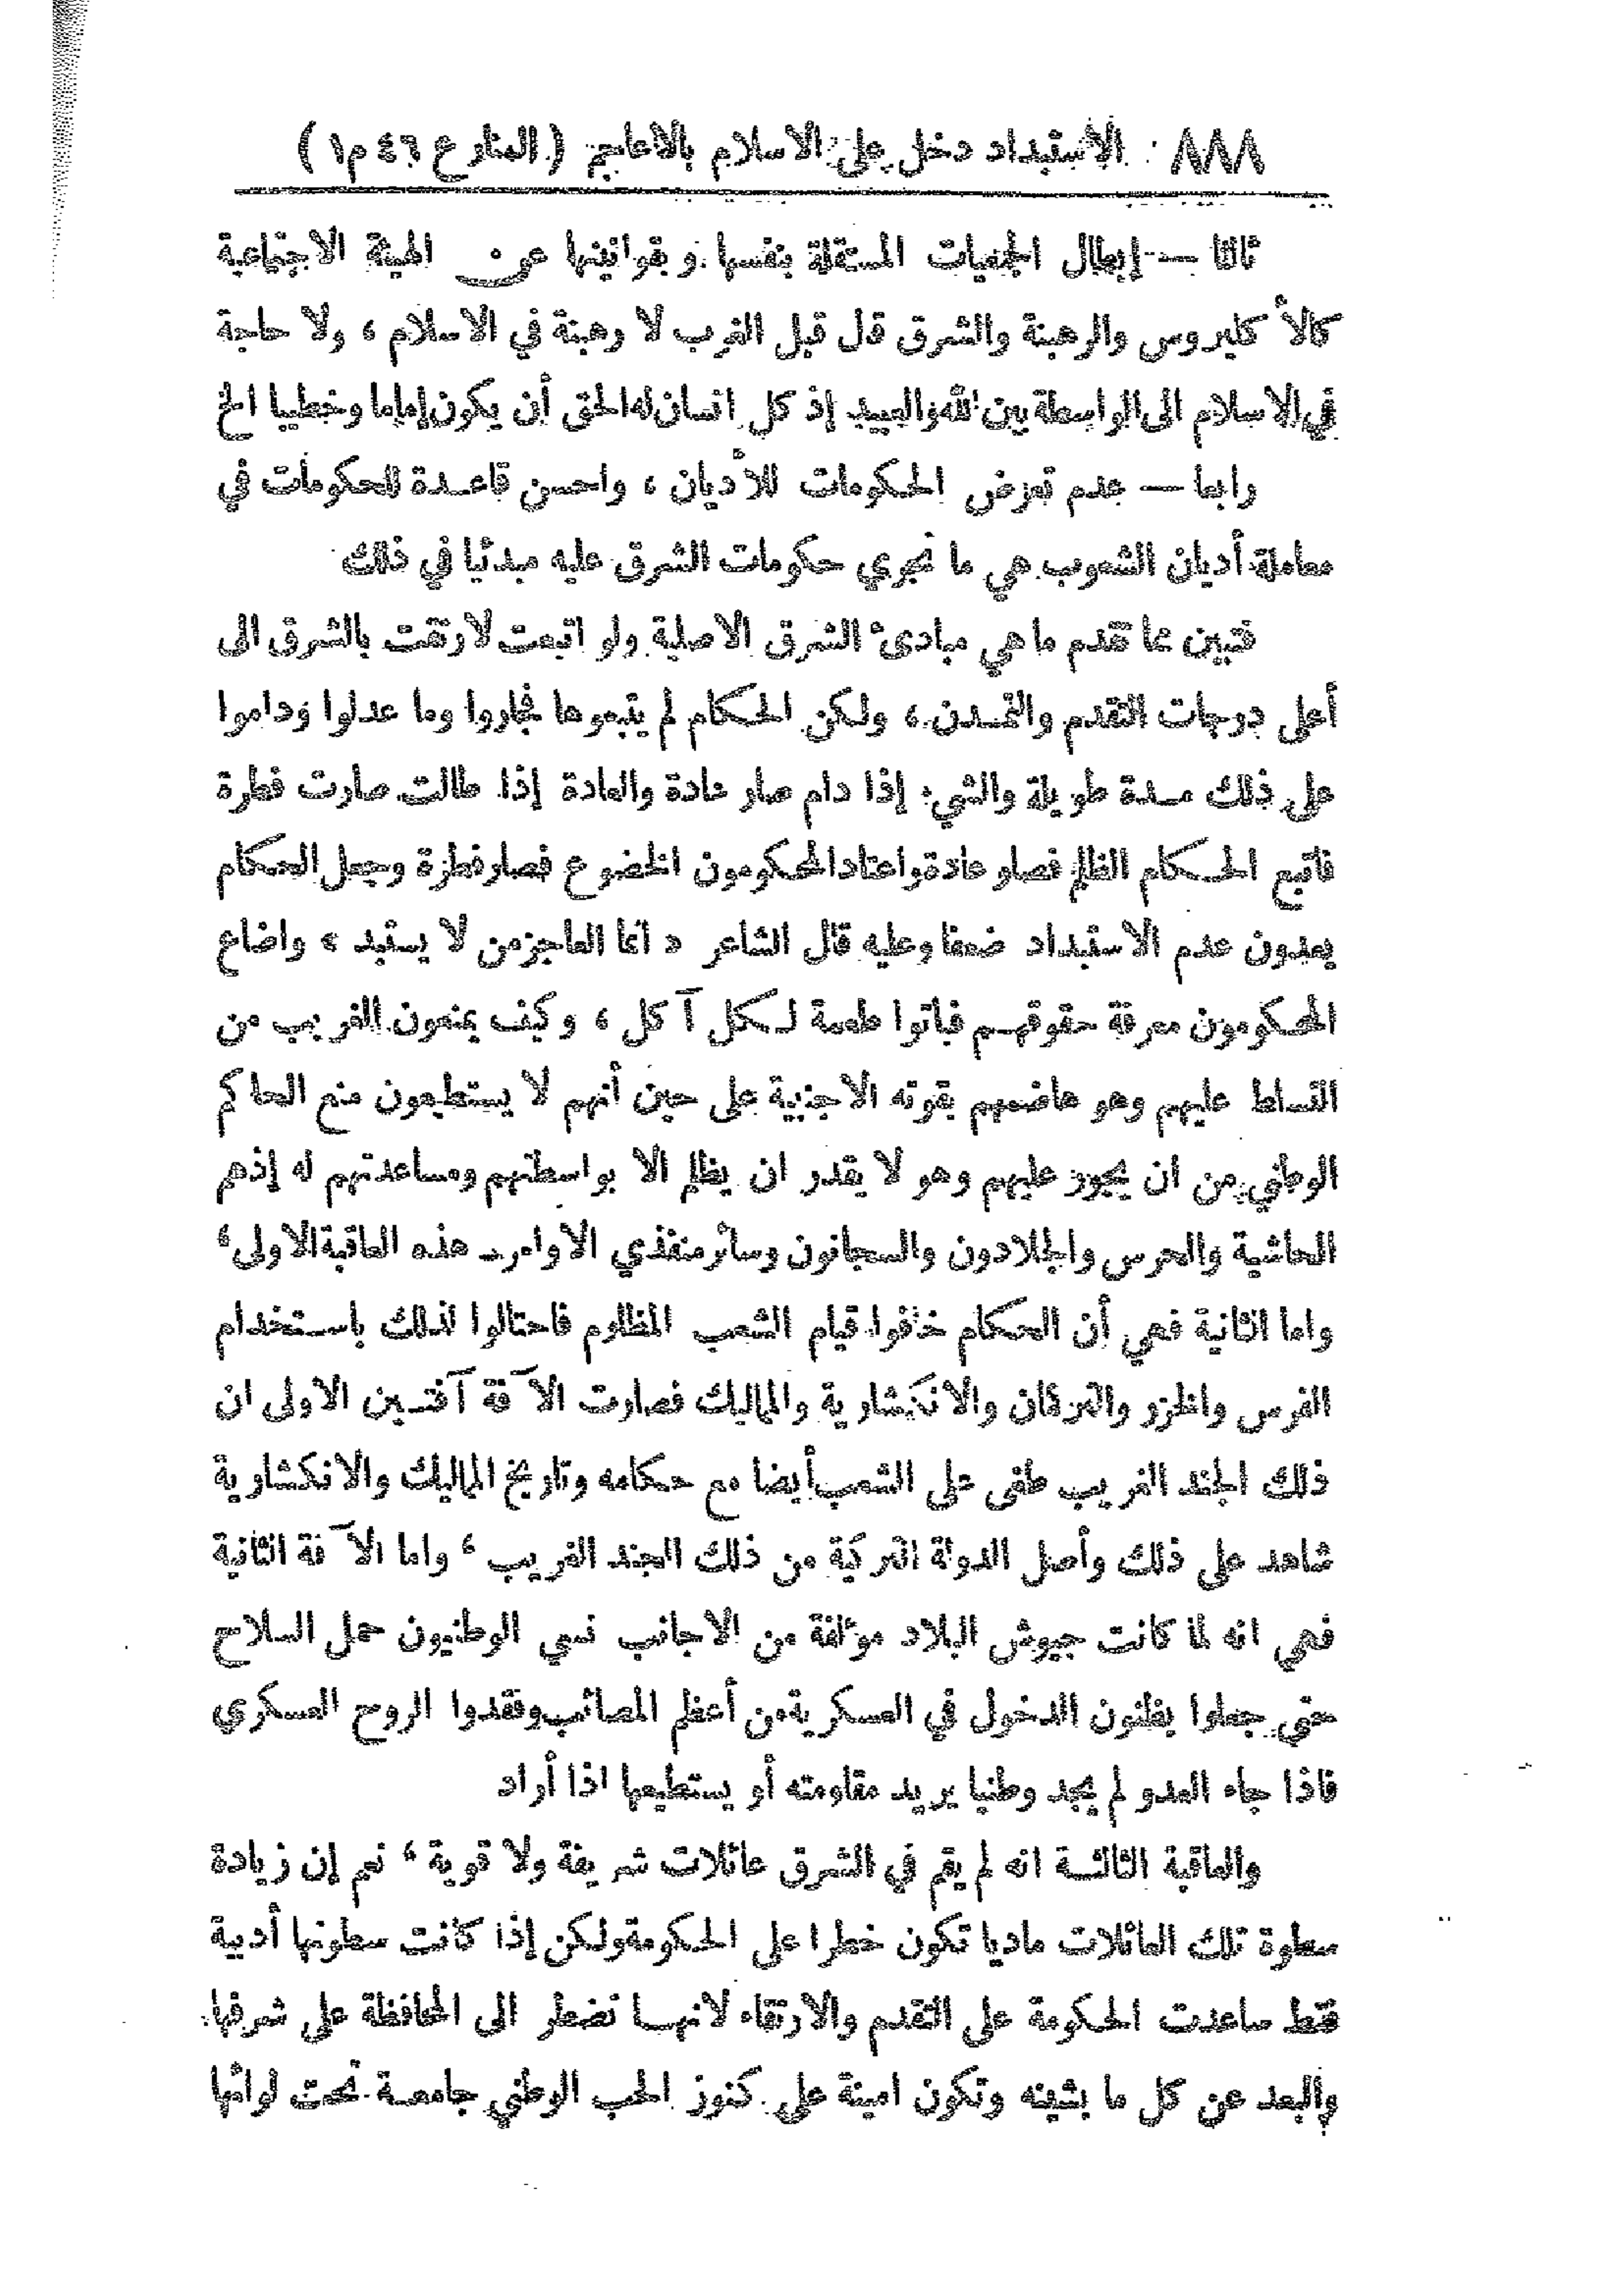 ٨٨٨ الاستبداد دخل على الاسلام بالاعاجم (المنار ع ٤٦ م ١)
ثالثا — إبطال الجمعيات المستقلة بنفسها وبقوانينها عن الهيئة الاجتماعية
كالأكليروس والرهبنة والشرق قال قبل الغرب لا رهبنة في الاسلام ، ولا حاجة
في الاسلام الى الواسطة بين الله والعبيد إذ كل انسان له الحق أن يكون إماما وخطيبا الخ
رابعا — عدم تعرض الحكومات للأديان ، واحسن قاعدة للحكومات في
معاملة أديان الشعوب هي ما تجري حكومات الشرق عليه مبدئيا في ذلك
فتبين مما تقدم ما هي مبادئ الشرق الاصلية ولو اتبعت لارتقت بالشرق الى
أعلى درجات التقدم والتمدن ، ولكن الحكام لم يتبعوها فجاروا وما عدلوا وداموا
على ذلك مدة طويلة والشيء إذا دام صار عادة والعادة إذا طالت صارت فطرة
فاتبع الحكام الظلم فصار عادة واعتاد المحكومون الخضوع فصار فطرة وجعل الحكام
يعدون عدم الاستبداد ضعفا وعليه قال الشاعر « انما العاجز من لا يستبد » واضاع
المحكومون معرفة حقوقهم فباتوا طعمة لكل آكل ، وكيف يمنعون الغريب من
التسلط عليهم وهو هاضمهم بقوته الاجنبية على حين أنهم لا يستطيعون منع الحاكم
الوطني من ان يجور عليهم وهو لا يقدر ان يظلم الا بواسطتهم ومساعدتهم له إذ هم
الحاشية والحرس والجلادون والسجانون وسائر منفذي الأوامر ـ هذه العاقبة الاولى ،
واما الثانية فهي أن الحكام خافوا قيام الشعب المظلوم فاحتالوا لذلك باستخدام
الفرس والخزر والتركمان والانكشارية والمماليك فصارت الآفة آفتين الاولى ان
ذلك الجند الغريب طغى على الشعب أيضا مع حكامه وتاريخ المماليك والانكشارية
شاهد على ذلك وأصل الدولة التركية من ذلك الجند الغريب ، واما الآفة الثانية
فهي انه لما كانت جيوش البلاد مؤلفة من الاجانب نسي الوطنيون حمل السلاح
حتى جعلوا يظنون الدخول في العسكرية من أعظم المصائب وفقدوا الروح العسكري
فاذا جاء العدو لم يجد وطنيا يريد مقاومته أو يستطيعها اذا أراد
والعاقبة الثالثة انه لم يقم في الشرق عائلات شريفة ولا قوية ، نعم إن زيادة
سطوة تلك العائلات ماديا تكون خطرا على الحكومة ولكن إذا كانت سطوتها أدبية
فقط ساعدت الحكومة على التقدم والارتقاء لانها تضطر الى المحافظة على شرفها
والبعد عن كل ما يشينه وتكون امينة على كنوز الحب الوطني جامعة تحت لوائها